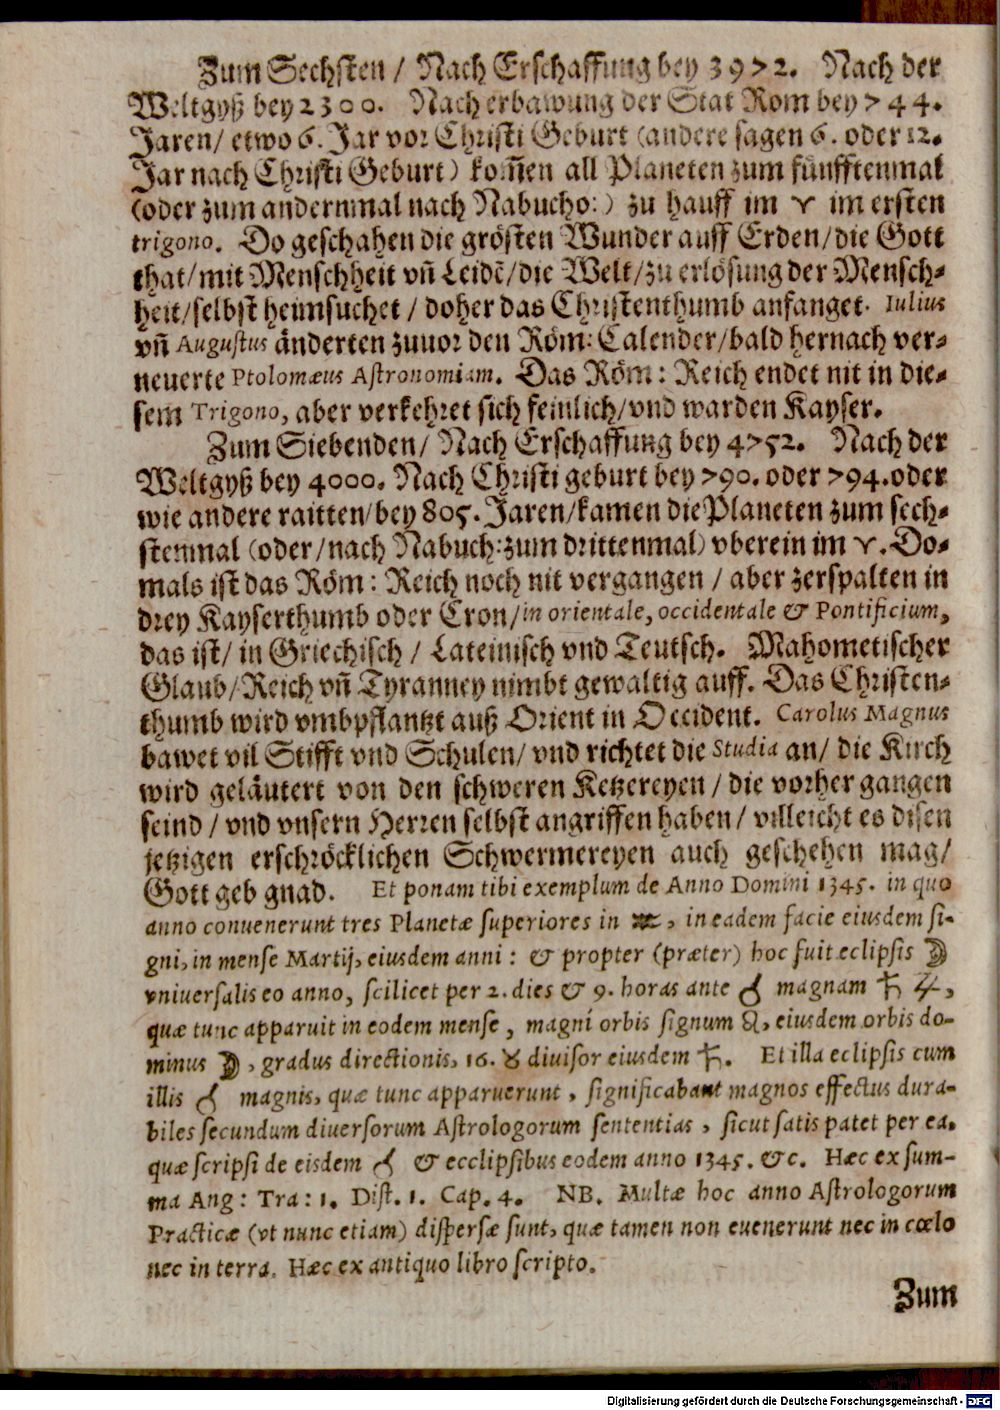 Zum Sechsten / Nach Erschaffung bey 3972. Nach der
Weltgyß bey 2300. Nach erbawung der Stat Rom bey 744.
Jaren / etwo 6. Jar vor Christi Geburt (andere sagen 6. oder 12.
Jar nach Christi Geburt) kom̃en all Planeten zum fünfftenmal
(oder zum andernmal nach Nabucho:) zu hauff im ♈ im ersten
trigono. Do geschahen die grösten Wunder auff Erden / die Gott
that / mit Menschheit vñ Leidẽ / die Welt / zu erlösung der Mensch-
heit / selbst heimsuchet / doher das Christenthumb anfanget. Iulius
vñ Augustus änderten zuuor den Röm: Calender / bald hernach ver-
neuerte Ptolomæus Astronomiam. Das Röm: Reich endet nit in die-
sem Trigono, aber verkehret sich feinlich / vnd warden Kayser.
Zum Siebenden / Nach Erschaffung bey 4752. Nach der
Weltgyß bey 4000. Nach Christi geburt bey 790. oder 794. oder
wie andere raitten / bey 805. Jaren / kamen die Planeten zum sech-
stenmal (oder / nach Nabuch: zum drittenmal) vberein im ♈. Do-
mals ist das Röm: Reich noch nit vergangen / aber zerspalten in
drey Kayserthumb oder Cron / in orientale, occidentale & Pontificium,
das ist / in Griechisch / Lateinisch vnd Teutsch. Mahometischer
Glaub / Reich vñ Tyranney nimbt gewaltig auff. Das Christen-
thumb wird vmbpflantzt auß Orient in Occident. Carolus Magnus
bawet vil Stifft vnd Schulen / vnd richtet die Studia an / die Kirch
wird geläutert von den schweren Ketzereyen / die vorher gangen
seind / vnd vnsern Herren selbst angriffen haben / villeicht es disen
jetzigen erschröcklichen Schwermereyen auch geschehen mag /
Gott geb gnad. Et ponam tibi exemplum de Anno Domini 1345. in quo
anno conuenerunt tres Planetæ superiores in ♒, in eadem facie eiusdem si-
gni, in mense Martij, eiusdem anni: & propter (præter) hoc fuit eclipsis ☽
vniuersalis eo anno, scilicet per 2. dies & 9. horas ante ☌ magnam ♄ ♃,
quæ tunc apparuit in eodem mense, magni orbis signum ♌, eiusdem orbis do-
minus ☽, gradus directionis, 16. ♉ diuisor eiusdem ♄. Et illa eclipsis cum
illis ☌ magnis, quæ tunc apparuerunt, significabant magnos effectus dura-
biles secundum diuersorum Astrologorum sententias, sicut satis patet per ea,
quæ scripsi de eisdem ☌ & ecclipsibus eodem anno 1345. &c. Hæc ex sum-
ma Ang: Tra: 1. Dist. 1. Cap. 4. NB. Multæ hoc anno Astrologorum
Practicæ (vt nunc etiam) dispersæ sunt, quæ tamen non euenerunt nec in cœlo
nec in terra. Hæc ex antiquo libro scripto.
Zum
Digitalisierung gefördert durch die Deutsche Forschungsgemeinschaft - DFG